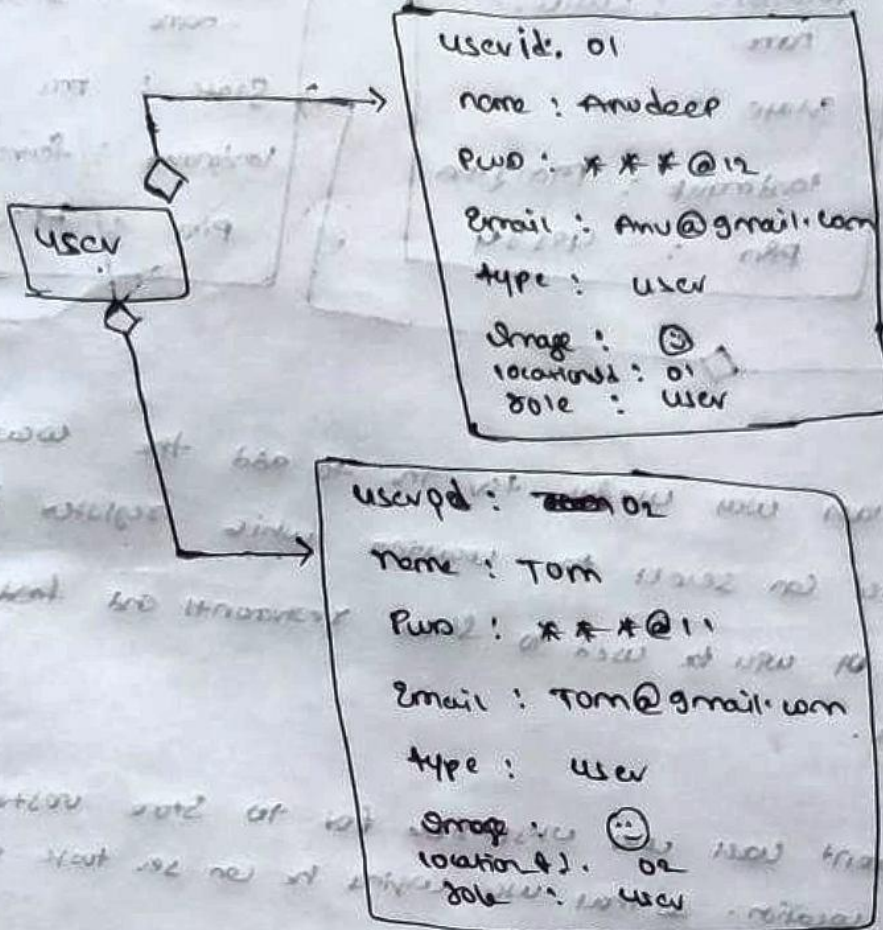 user
userid. 01
name : Anudeep
PWD : ***@12
Email : Anu@gmail.com
type : user
Image : ☺
locationId : 01
role : user
userId : 02
name : Tom
PWD : ***@11
Email : Tom@gmail.com
type : user
Image : ☺
locationId. 02
role : user